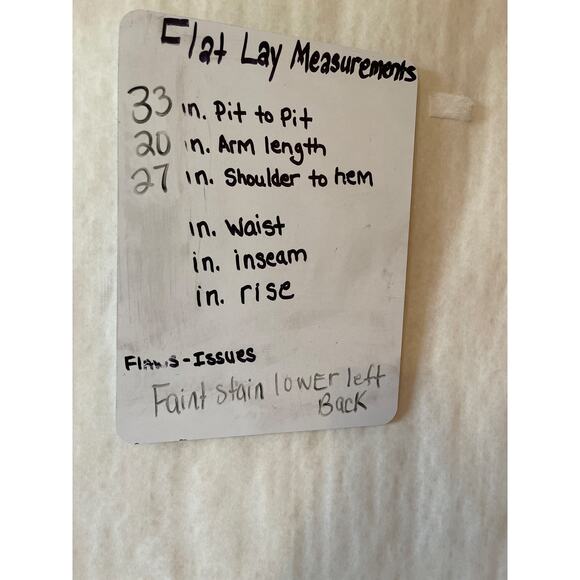 Flat Lay Measurements
33 in. Pit to Pit
20 in. Arm length
27 in. Shoulder to hem
in. Waist
in. inseam
in. rise
Flaws-Issues
Faint stain lower left
Back